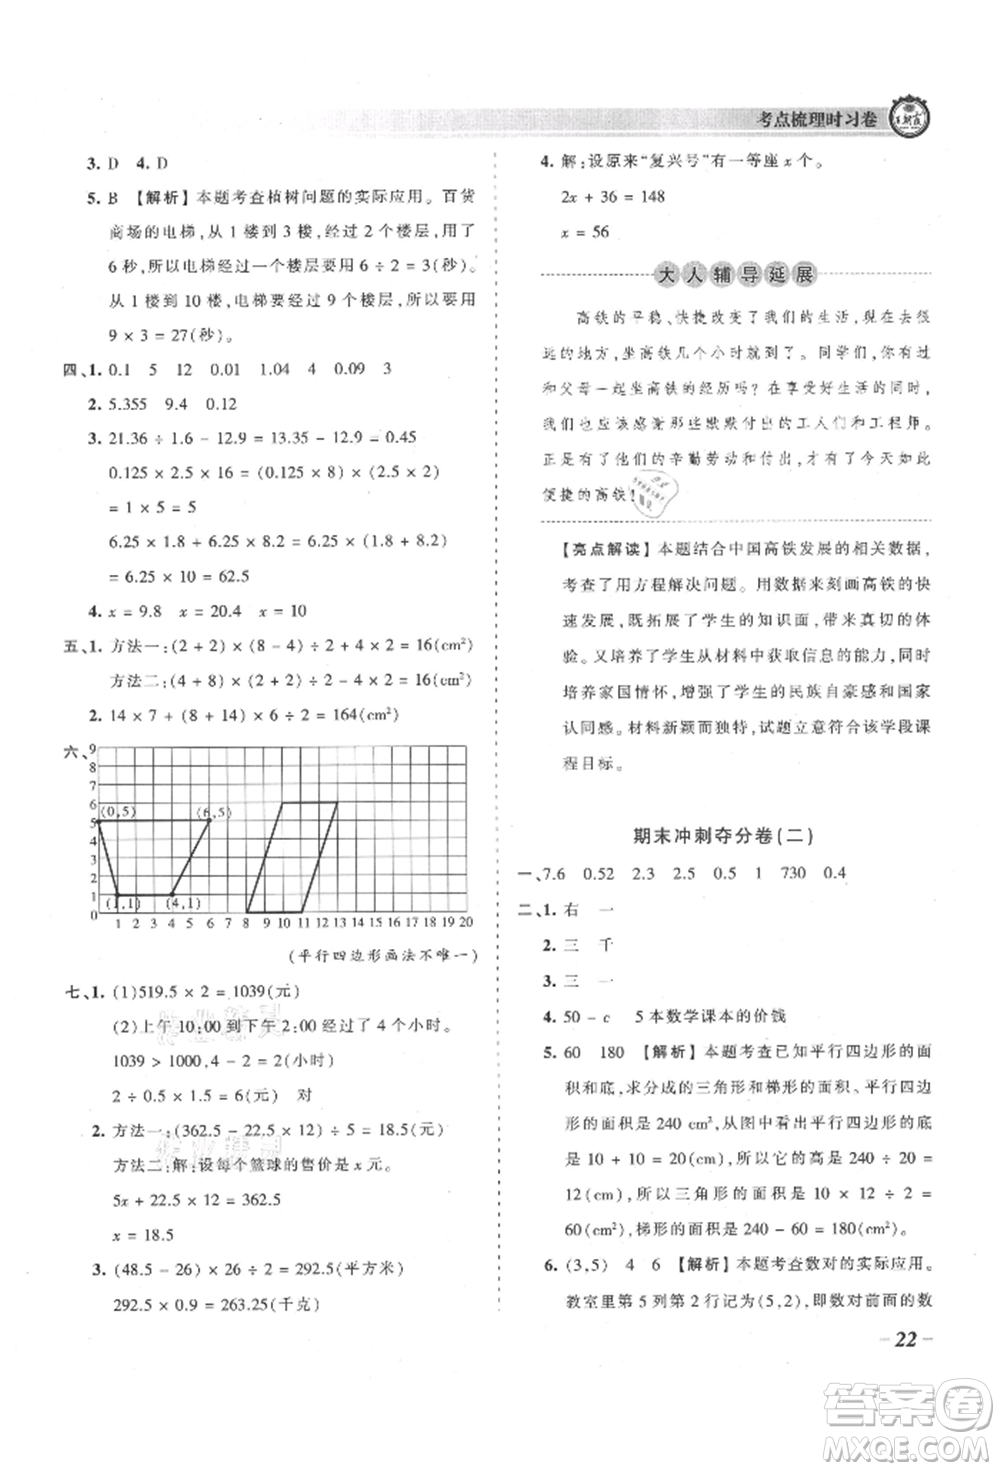 考点梳理时习卷
王朝霞
3. D　4. D
5. B　【解析】本题考查植树问题的实际应用。百货
商场的电梯,从 1 楼到 3 楼,经过 2 个楼层,用了
6 秒,所以电梯经过一个楼层需要 6 ÷ 2 = 3(秒)。
从 1 楼到 10 楼,电梯要经过 9 个楼层,所以要用
9 × 3 = 27(秒)。
四、1. 0.1　5　12　0.01　1.04　4　0.09　3
2. 5.355　9.4　0.12
3. 21.36 ÷ 1.6 - 12.9 = 13.35 - 12.9 = 0.45
0.125 × 2.5 × 16 = (0.125 × 8) × (2.5 × 2)
= 1 × 5 = 5
6.25 × 1.8 + 6.25 × 8.2 = 6.25 × (1.8 + 8.2)
= 6.25 × 10 = 62.5
4. x = 9.8　x = 20.4　x = 10
五、1. 方法一:(2 + 2) × (8 - 4) ÷ 2 + 4 × 2 = 16(cm²)
方法二:(4 + 8) × (2 + 2) ÷ 2 - 4 × 4 ÷ 2 = 16(cm²)
2. 14 × 7 + (8 + 14) × 6 ÷ 2 = 164(cm²)
六、
9
8
7
6
5
4
3
2
1
0
(0,5)　(6,5)
(1,1)　(4,1)
1 2 3 4 5 6 7 8 9 10 11 12 13 14 15 16 17 18 19 20
(平行四边形画法不唯一)
七、1. (1)519.5 × 2 = 1039(元)
(2)上午 10:00 到下午 2:00 经过了 4 个小时。
1039 > 1000,4 - 2 = 2(小时)
2 ÷ 0.5 × 1.5 = 6(元)　对
2. 方法一:(362.5 - 22.5 × 12) ÷ 5 = 18.5(元)
方法二:解:设每个篮球的售价是 x 元。
5x + 22.5 × 12 = 362.5
x = 18.5
3. (48.5 - 26) × 26 ÷ 2 = 292.5(平方米)
292.5 × 0.9 = 263.25(千克)
4. 解:设原来“复兴号”有一等座 x 个。
2x + 36 = 148
x = 56
大人辅导延展
高铁的平稳、快捷改变了我们的生活,在很
远的地方,坐高铁几个小时就到了。同学们,你有
和父母一起坐高铁的经历吗?在享受美好生活的同时,
我们也应该感谢那些默默付出的工人们和工程师。
正是有了他们的辛勤劳动和付出,才有了今天如此
便捷的高铁!
【亮点解读】本题结合中国高铁发展的相关数据,
考查了用方程解决问题。用数据来刻画高铁的快
速发展,既扩展了学生的知识面,又有真实的体
验。又培养了学生从材料中获取信息的能力,同时
培养家国情怀,增强了学生的民族自豪感和国家
认同感。材料新颖而独特,试题立意符合该学段课
程目标。
期末冲刺夺分卷(二)
一、7.6　0.52　2.3　2.5　0.5　1　730　0.4
二、1. 右　一
2. 三　千
3. 三　一
4. 50 - c　5 本数学课本的价钱
5. 60　180　【解析】本题考查已知平行四边形的面
积和底,求分成的三角形和梯形的面积。平行四边
形的面积是 240 cm²,从图中求出平行四边形的底
是 10 + 10 = 20(cm),所以它的高是 240 ÷ 20 =
12(cm),所以三角形的面积是 10 × 12 ÷ 2 =
60(cm²),梯形的面积是 240 - 60 = 180(cm²)。
6. (3,5)　4　6　【解析】本题考查数对的实际应用。
教室里第 5 列第 2 行记为(5,2),即数对前面的数
- 22 -
答案卷
MXQE.COM